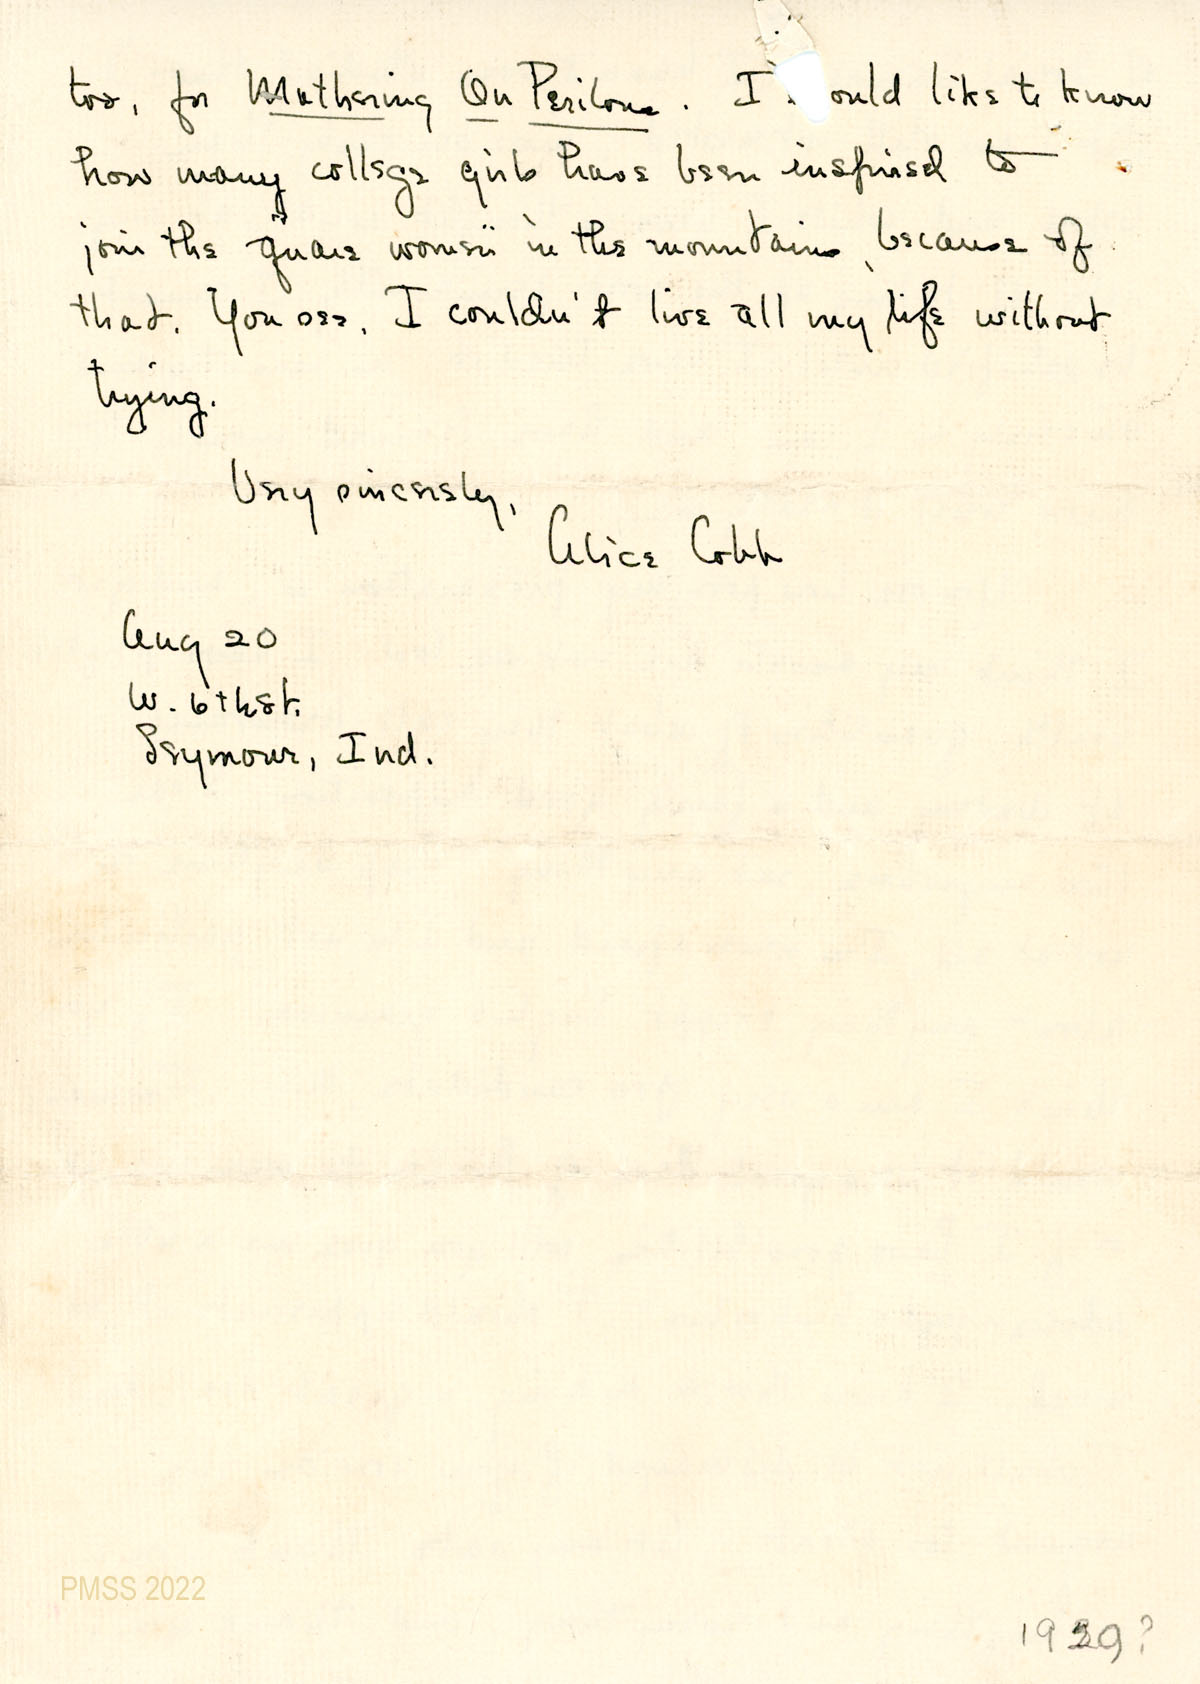 too, for Mothering On Perilous. I ould like to know
how many college girls have been inspired to
join the "quare women" in the mountains, because of
that. You see, I couldn't live all my life without
trying.
Very sincerely,
Alice Cobb
Aug 20
W. 6th St.
Seymour, Ind.
PMSS 2022
1929?